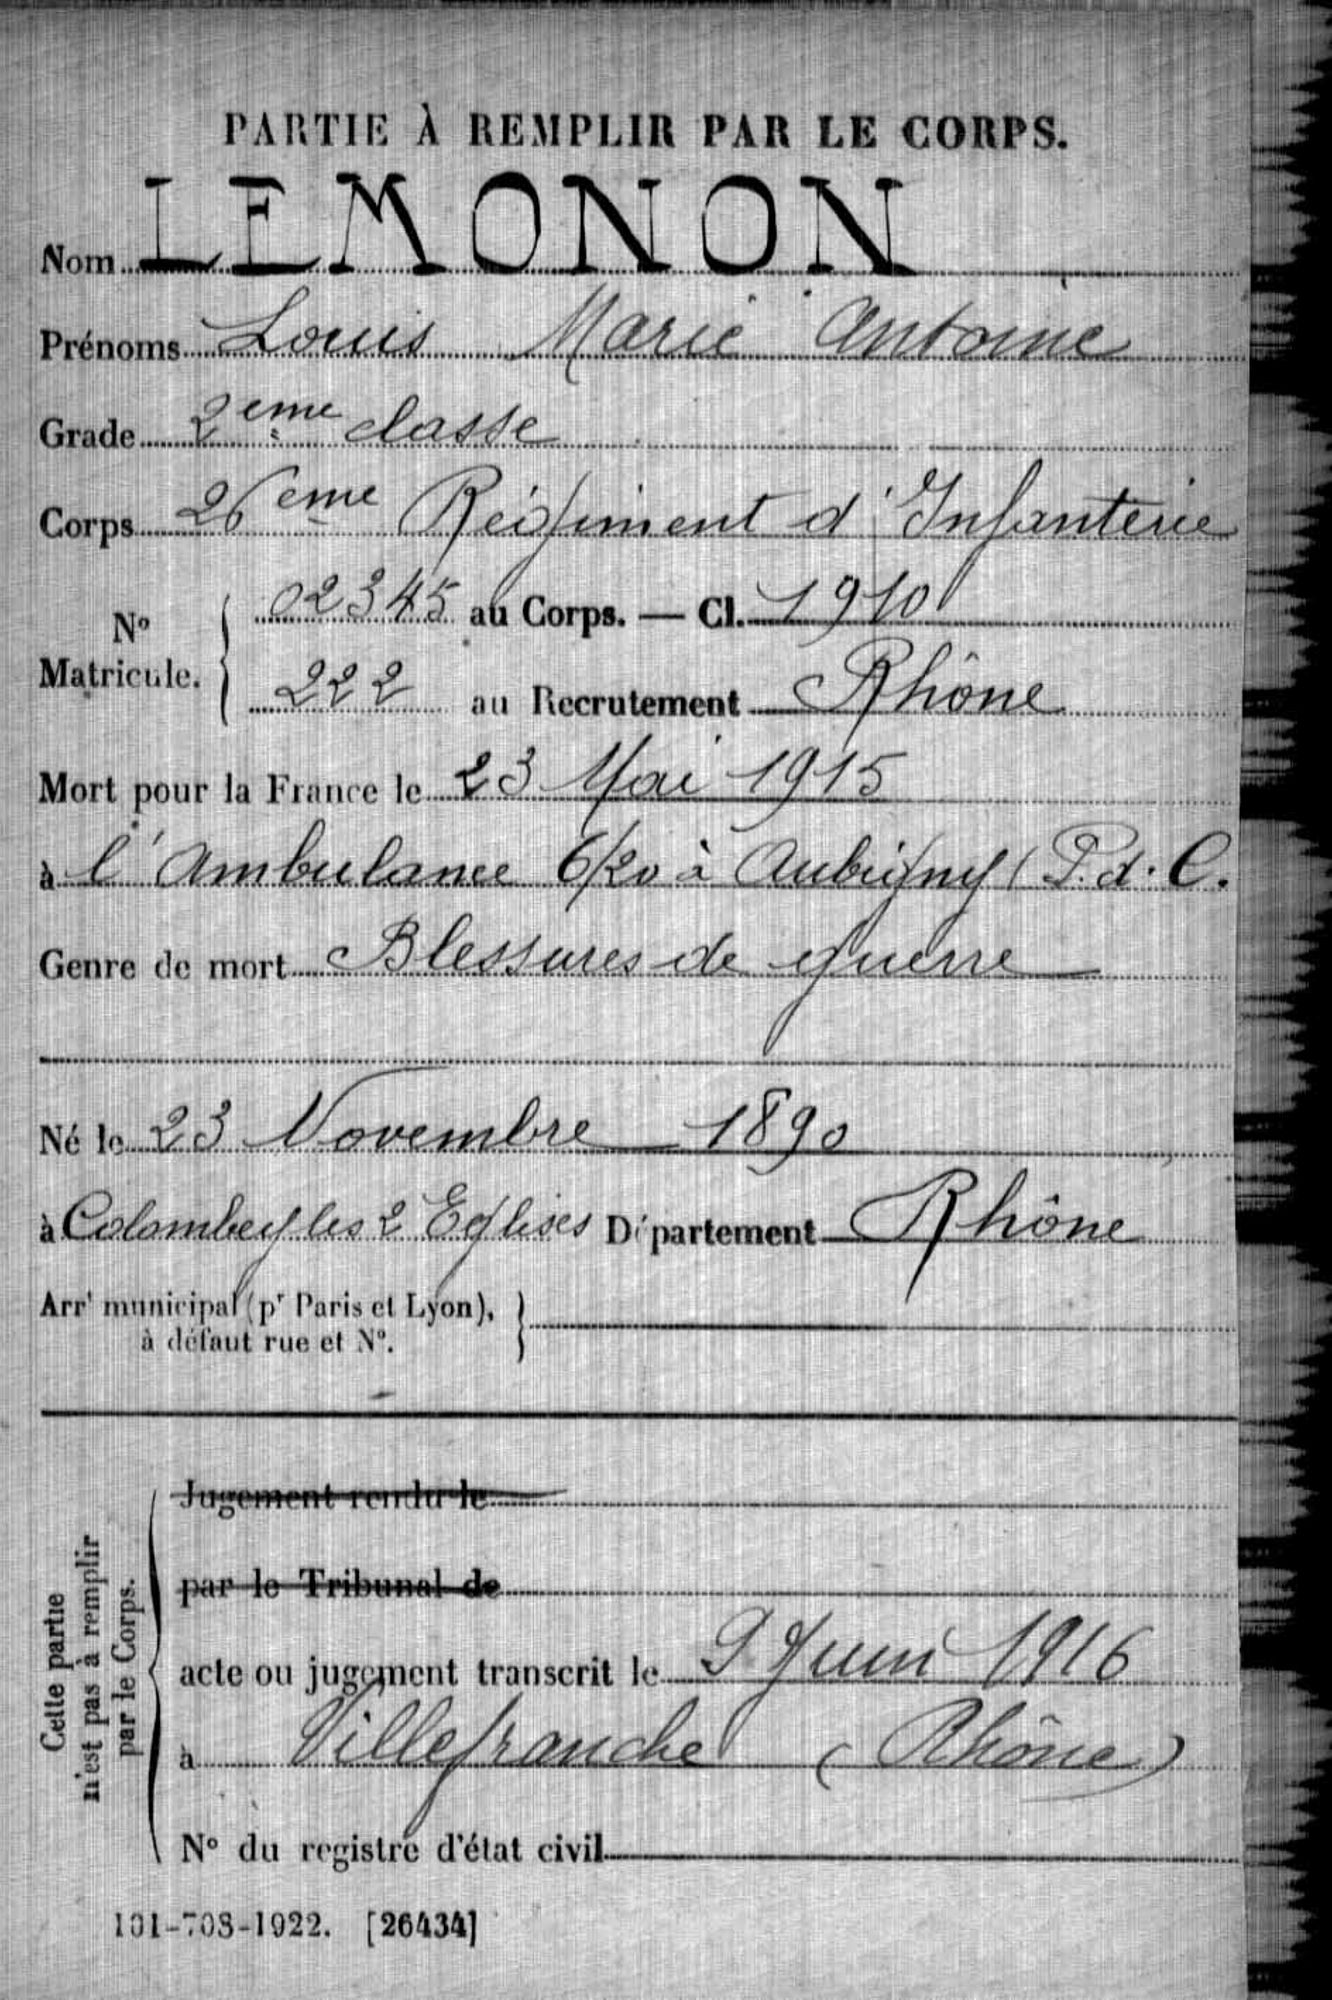 PARTIE À REMPLIR PAR LE CORPS.
Nom LEMONON
Prénoms Louis Marie Antoine
Grade 2eme classe
Corps 26eme Régiment d'Infanterie
No Matricule. { 02345 au Corps. — Cl. 1910
222 au Recrutement Rhône
Mort pour la France le 23 Mai 1915
à l'Ambulance 6/20 à Aubigny (P.d.C.
Genre de mort Blessures de guerre
Né le 23 Novembre 1890
à Colombey les 2 Eglises Département Rhône
Arrt municipal (pr Paris et Lyon), }
à défaut rue et No.
Cette partie
n'est pas à remplir
par le Corps.
Jugement rendu le
par le Tribunal de
acte ou jugement transcrit le 9 Juin 1916
à Villefranche (Rhône)
No du registre d'état civil
101-708-1922. [26434]